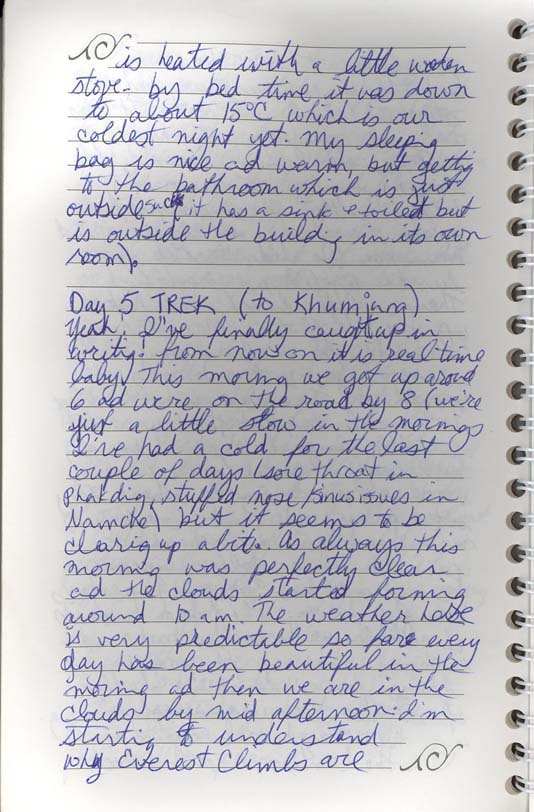 is heated with a little wooden
stove. by bed time it was down
to about 15°C which is our
coldest night yet. My sleeping
bag is nice ad warm, but gettig
to the bathroom which is just
outside suck (it has a sink & toilet but
is outside the building in its own
room).
Day 5 TREK (to Khumjung)
Yeah! I've finally caught up in
writig! from now on it is real-time
baby! This mornig we got up aroud
6 ad were on the road by 8 (we're
just a little slow in the mornings
I've had a cold for the last
couple of days (sore throat in
Phakdig, stuffed nose/sinus issues in
Namche) but it seems to be
clearig up a bit. As always this
mornig was perfectly clear
ad the clouds started forming
around 10 am. The weather here
is very predictable so far every
day has been beautiful in the
mornig ad then we are in the
clouds by mid afternoon. I'm
startig to understand
why Everest Climbs are